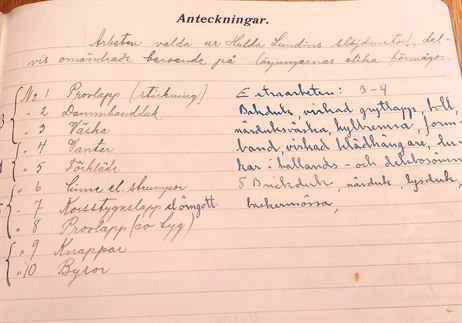 Anteckningar.
Arbeten valda ur Hulda Lundins slöjdmetod, del-
vis omändrade beroende på lärjungarnas olika förmåga.
No 1 Provlapp (stickning)
" 2 Dammhandduk
" 3 Väska
" 4 Vantar
" 5 Förkläde
" 6 el. strumpor
" 7 Korsstygnslapp el. ömgott
" 8 Provlapp (av tyg)
" 9 Knappar
" 10 Byxor
Extraarbeten: 3-4
Bakduk, virkad grytlapp, boll,
näsduksväska, hyllremsa,
band, virkad klädhängare, du-
kar i hallands- och delsbosöm
5 Brickduk, näsduk, ljusduk,
baskermössa,